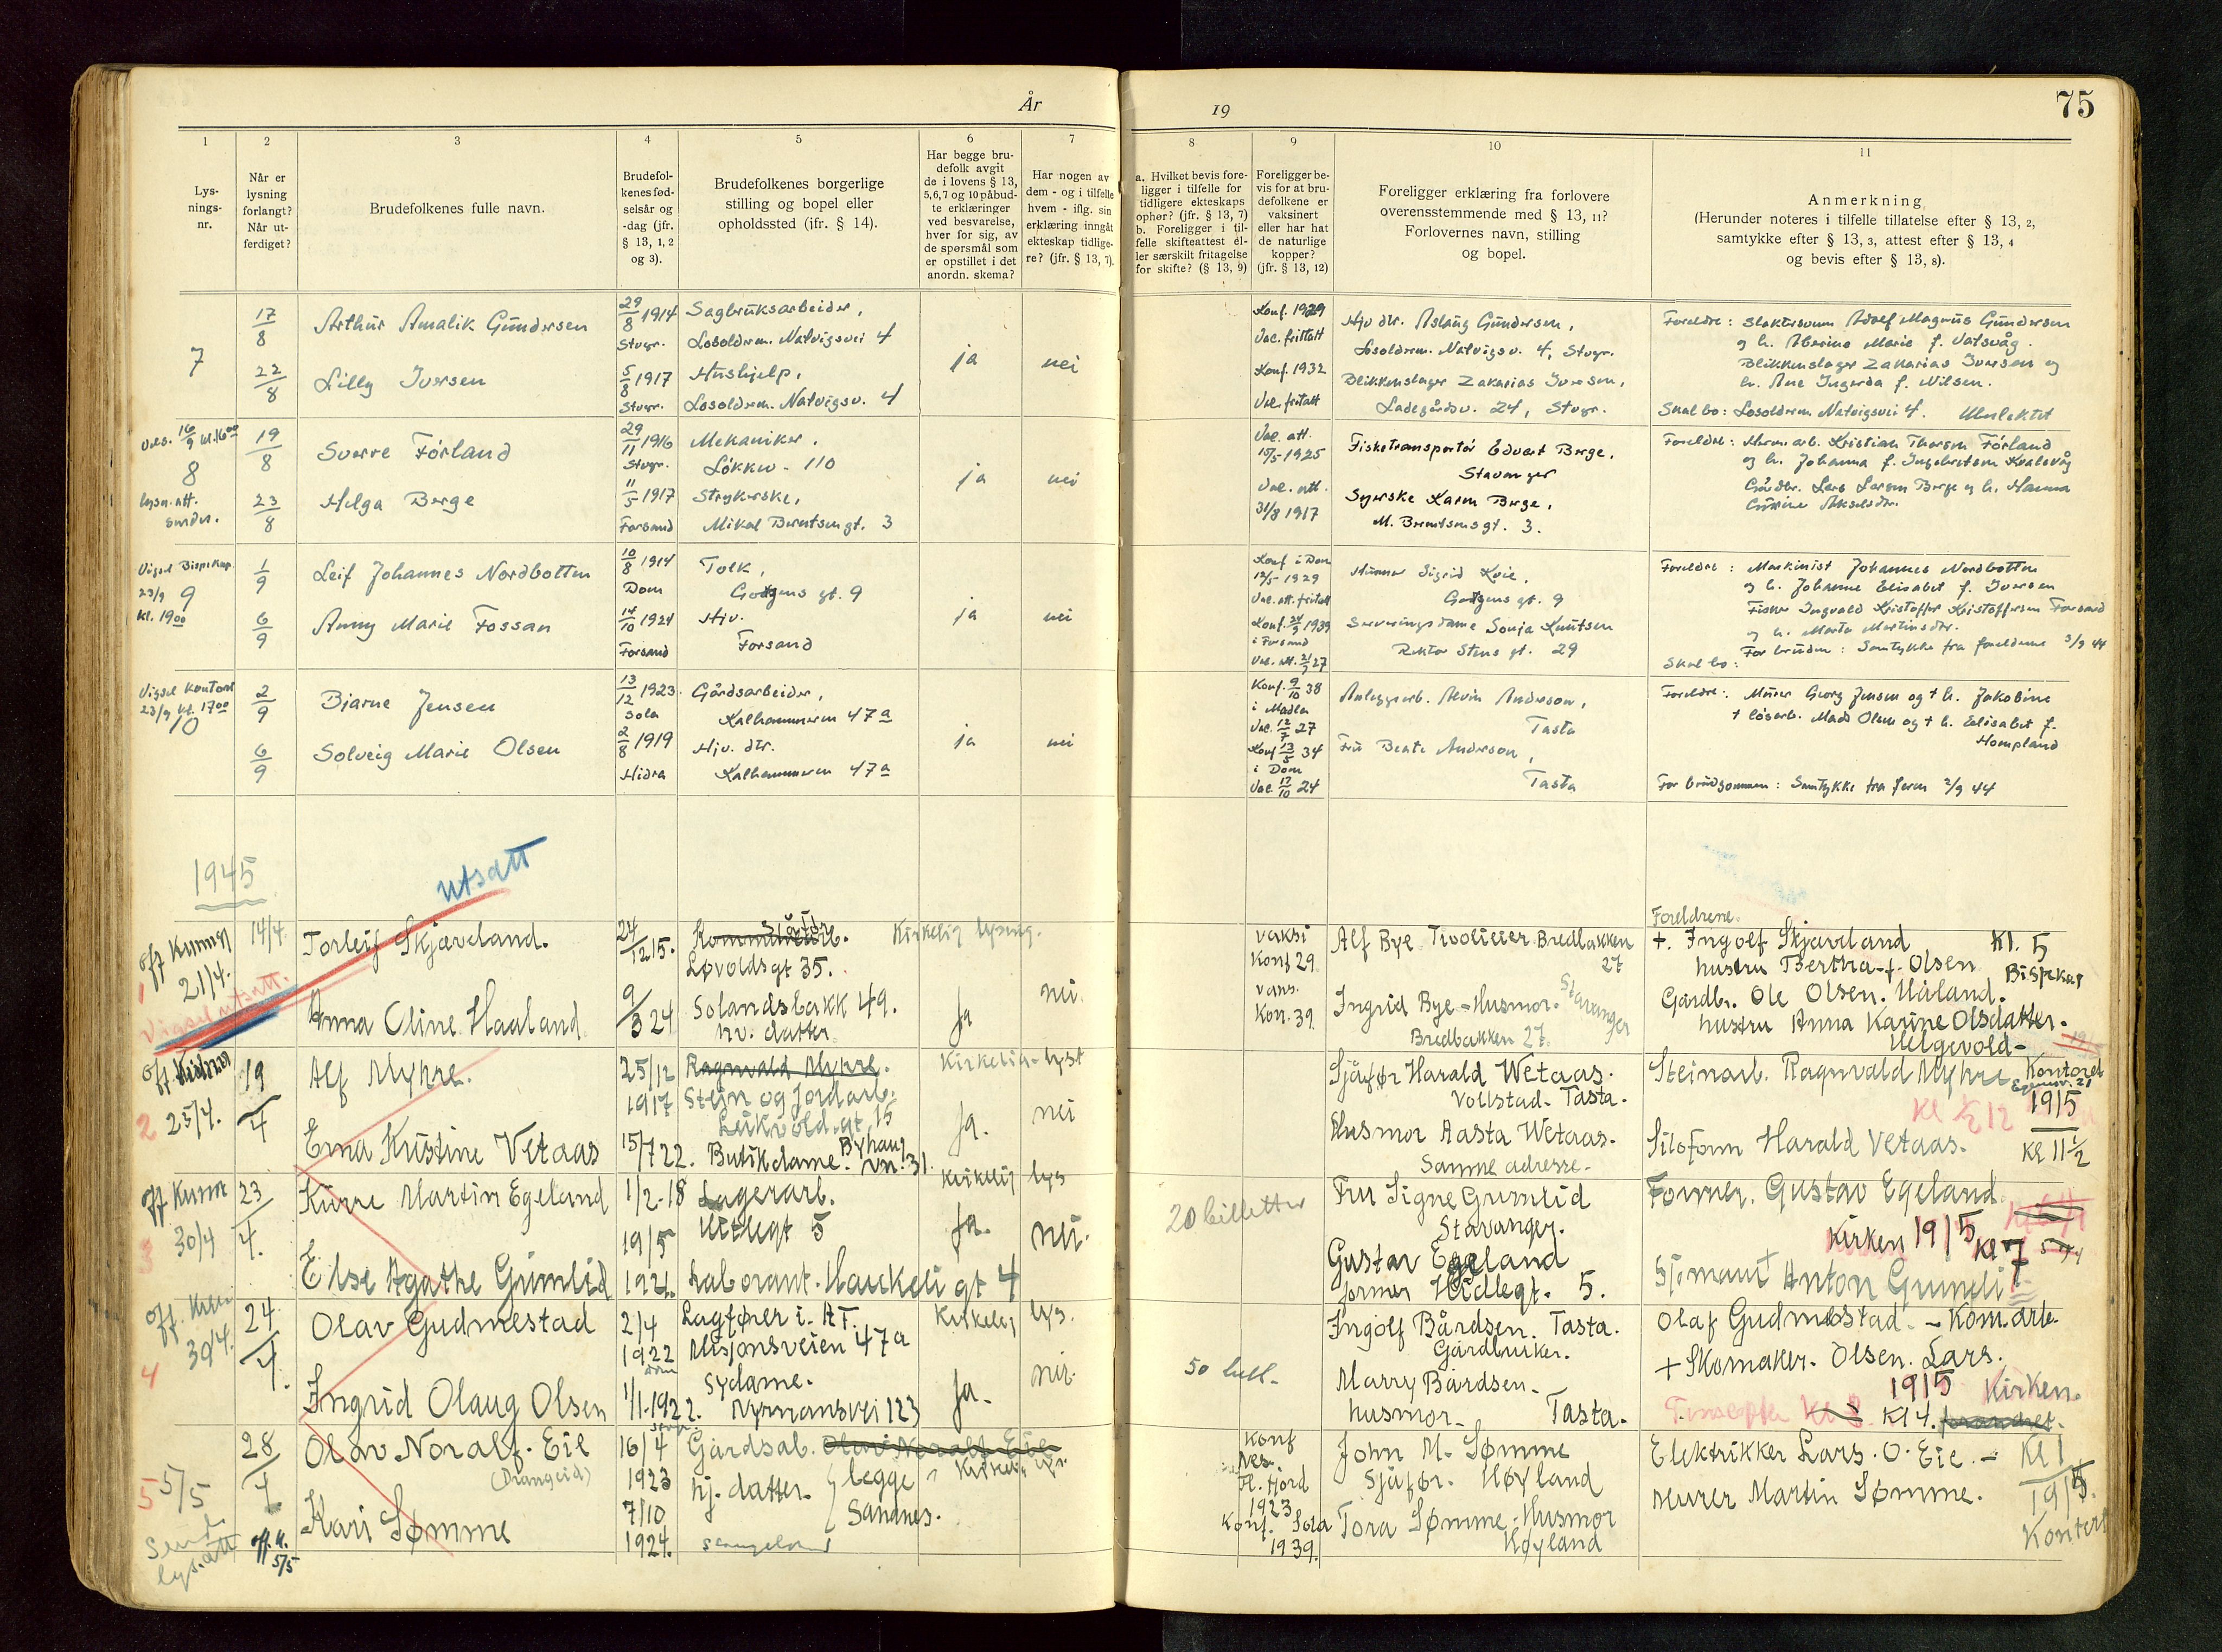 År
19
75
1
2
3
4
5
6
7
8
9
10
11
Lys-
nings-
nr.
Når er
lysning
forlangt?
Når ut-
ferdiget?
Brudefolkenes fulle navn.
Brudefol-
kenes fød-
selsår og
-dag (jfr.
§ 13, 1, 2
og 3).
Brudefolkenes borgerlige
stilling og bopel eller
opholdssted (jfr. § 14).
Har begge bru-
defolk avgit
de i lovens § 13,
5,6,7 og 10 påbud-
te erklæringer
ved besvarelse,
hver for sig, av
de spørsmål som
er opstillet i det
anordn. skema?
Har nogen av
dem - og i tilfelle
hvem - iflg. sin
erklæring inngått
ekteskap tidlige-
re? (jfr. § 13, 7).
a. Hvilket bevis fore-
ligger i tilfelle for
tidligere ekteskaps
ophør? (jfr. § 13, 7)
b. Foreligger i til-
felle skifteattest el-
ler særskilt fritagelse
for skifte? (§ 13, 9)
Foreligger be-
vis for at bru-
defolkene er
vaksinert
eller har hat
de naturlige
kopper?
(jfr. § 13, 12)
Foreligger erklæring fra forlovere
overensstemmende med § 13, 11?
Forlovernes navn, stilling
og bopel.
Anmerkning
(Herunder noteres i tilfelle tillatelse efter § 13, 2,
samtykke efter § 13, 3, attest efter § 13, 4
og bevis efter § 13, 8).
7
17/8
22/8
Arthur Amalik Gundersen
Lilly Iversen
29/8 1914
Stvgr.
5/8 1917
Stvgr.
Sagbruksarbeider,
Losoldrem. Natvigsvei 4
Hushjelp,
Losoldrem. Natvigsv. 4
ja
nei
Konf. 1929
Vac. frittatt
Konf. 1932
Vac. fritatt
Hjv dtr. Aslaug Gundersen,
Losoldrem. Natvigsv. 4, Stvgr.
Blikkenslager Zakarias Iversen,
Ladegårdsv. 24, Stvgr.
Foreldre: Slaktersvenn Adolf Magnus Gundersen
og h. Marie f. Vatsvåg.
Blikkenslager Zakarias Iversen og
h. Ane Ingerda f. Nilsen.
Skal bo: Losoldrem Natvigsvei 4. Ubeslektet
16/9 kl. 16⁰⁰
8
lysn. att.
sender.
19/8
23/8
Sverre Førland
Helga Berge
29/11 1916
Stvgr.
11/5 1917
Forsand
Mekaniker,
Løkkev. 110
Strykerske,
Mikal Berntsengt. 3
ja
nei
Vac. att.
15/5 1925
Vac. att.
31/8 1917
Fisketransportør Edvart Berge,
Stavanger
Syerske Karen Berge,
M. Berntsensgt. 3.
Foreldre: Herm. arb. Kristian Thorsen Førland
og h. Johanna f. Ingebretsen Kvalevåg
Gårdbr. Lars Larsen Berge og h. Hanna
Gurine Akselsdtr.
Vigsel Bispekap.
23/9
9
kl. 19⁰⁰
1/9
6/9
Leif Johannes Nordbotten
Anny Marie Fossan
10/8 1914
Dom
14/10 1924
Forsand
Tolk,
gt. 9
Hjv.
Forsand
ja
nei
Konf i Dom
12/5 1929
Vac. att. fritatt
Konf. 24/9 1939
i Forsand
Vac. att. 21/9 27
Sigrid Kvie,
gt. 9
Serveringsdame Sonja Knutsen
Rektor Stens gt. 29
Foreldre: Maskinist Johannes Nordbotten
og h. Johanne Elisabet f. Iversen
Fisker Ingvald Kristoffer Kristoffersen Forsand
og h. Marta Martinsdtr.
For bruden: Samtykke fra foreldrene 3/9 44
Skal bo:
Vigsel kontoret
23/9 kl. 17⁰⁰
10
2/9
6/9
Bjarne Jensen
Solveig Marie Olsen
13/12 1923.
Sola
2/8 1919
Hidra
Gårdsarbeider,
Kalhammeren 47a
Hjv. dtr.
Kalhammeren 47a
ja
nei
Konf. 9/10 38
i Madla
Vac. 12/7 27
Konf 13/5 34
i Dom
Vac. 17/10 24
Anleggsarb. Alvin Anderson,
Tasta
Fru Beate Anderson,
Tasta
Foreldre: Murer Georg Jensen og † h. Jakobine
† løsarb. Mads Olsen og † h. Elisabet f.
Hompland
For brudgommen: Samtykke fra faren 2/9 44
1945
utsatt
off Kunngj
21/4.
1
Vigsel utsatt.
14/4.
Torleif Skjæveland.
Anna Oline Haaland
24/12 15.
9/3 24
Løvoldsgt 35.
Solandsbakk 49.
hv. datter
Kirkelig lysing.
Ja
nei.
vaksi
Konf 29.
vaks.
Kon. 39
Alf Bye Bredbakken
27
Stavanger
Ingrid Bye - Husmor.
Bredbakken 27.
Foreldrene.
+. Ingolf Skjæveland Kl. 5
hustru Bertha f. Olsen Bispekap
Gårdbr. Ole Olsen. Håland.
hustru Anna Karine Olsdatter.
Helgevold -
off Kunng
2 25/4.
19/4
Alf Myhre.
Erna Kristine Vetaas
25/12
1917
15/7 22.
Ragnvald Myhre.
Stein og Jordarb.
Leikvold. gt 15
Butikdame. Byhaug
vn. 31.
Kirkelig - lyst
Ja.
nei
Sjåfør Harald Wetaas.
Vollstad - Tasta.
Husmor Aasta Wetaas.
Samme adresse -
Steinarb. Ragnvald Myhre Kontoret
19/5
Kl 12
Harald Vetaas. Kl 11 ½
off Kunn
3 30/4
23/4.
Kåre Martin Egeland
Else Agathe Grimlid
1/2-18
19/5
1921.
Lagerarb.
5
Laborant. Haukeli gt 4
Kirkelig lys
Ja.
nei.
20 billetter
Fru Signe Grimlid
Stavanger.
Gustav Egeland
former 5.
Former. Gustav Egeland
Kirken 19/5 Kl 7
Anton
off. Kunn
4 30/4.
24/4.
Olav Gudmestad
Ingrid Olaug Olsen
2/4
1922
1/1-1922.
Lagfører i. AT.
Misjonsveien 47a
Sydame.
Nymansvei 123
Kirkelig lys.
Ja.
nei.
50 bill.
Ingolf Bårdsen. Tasta.
Gårdbruker.
Marry Bårdsen.
husmor - Tasta.
Olaf Gudmestad. - Kom. arb.
+ Skomaker. Olsen. Lars.
19/5 Kirken.
Kl 4.
5 5/5
Send
lys. att
28/4
off. K.
5/5
Olav Noralf. Eie
(Drangeid)
Kari Sømme
16/4
1923
7/10
1924.
Gårdsab. Olav Noralf Eie
hj. datter. begge
Sandnes.
Kirkelig lys.
Konf
Nes.
Fl. fjord
1923
Konf. Sola
1939.
John M. Sømme
Sjåfør. Høyland
Tora Sømme - Husmor
Høyland
Elektrikker Lars. O. Eie. - Kl 1
Murer Martin Sømme. 19/5.
Kontoret